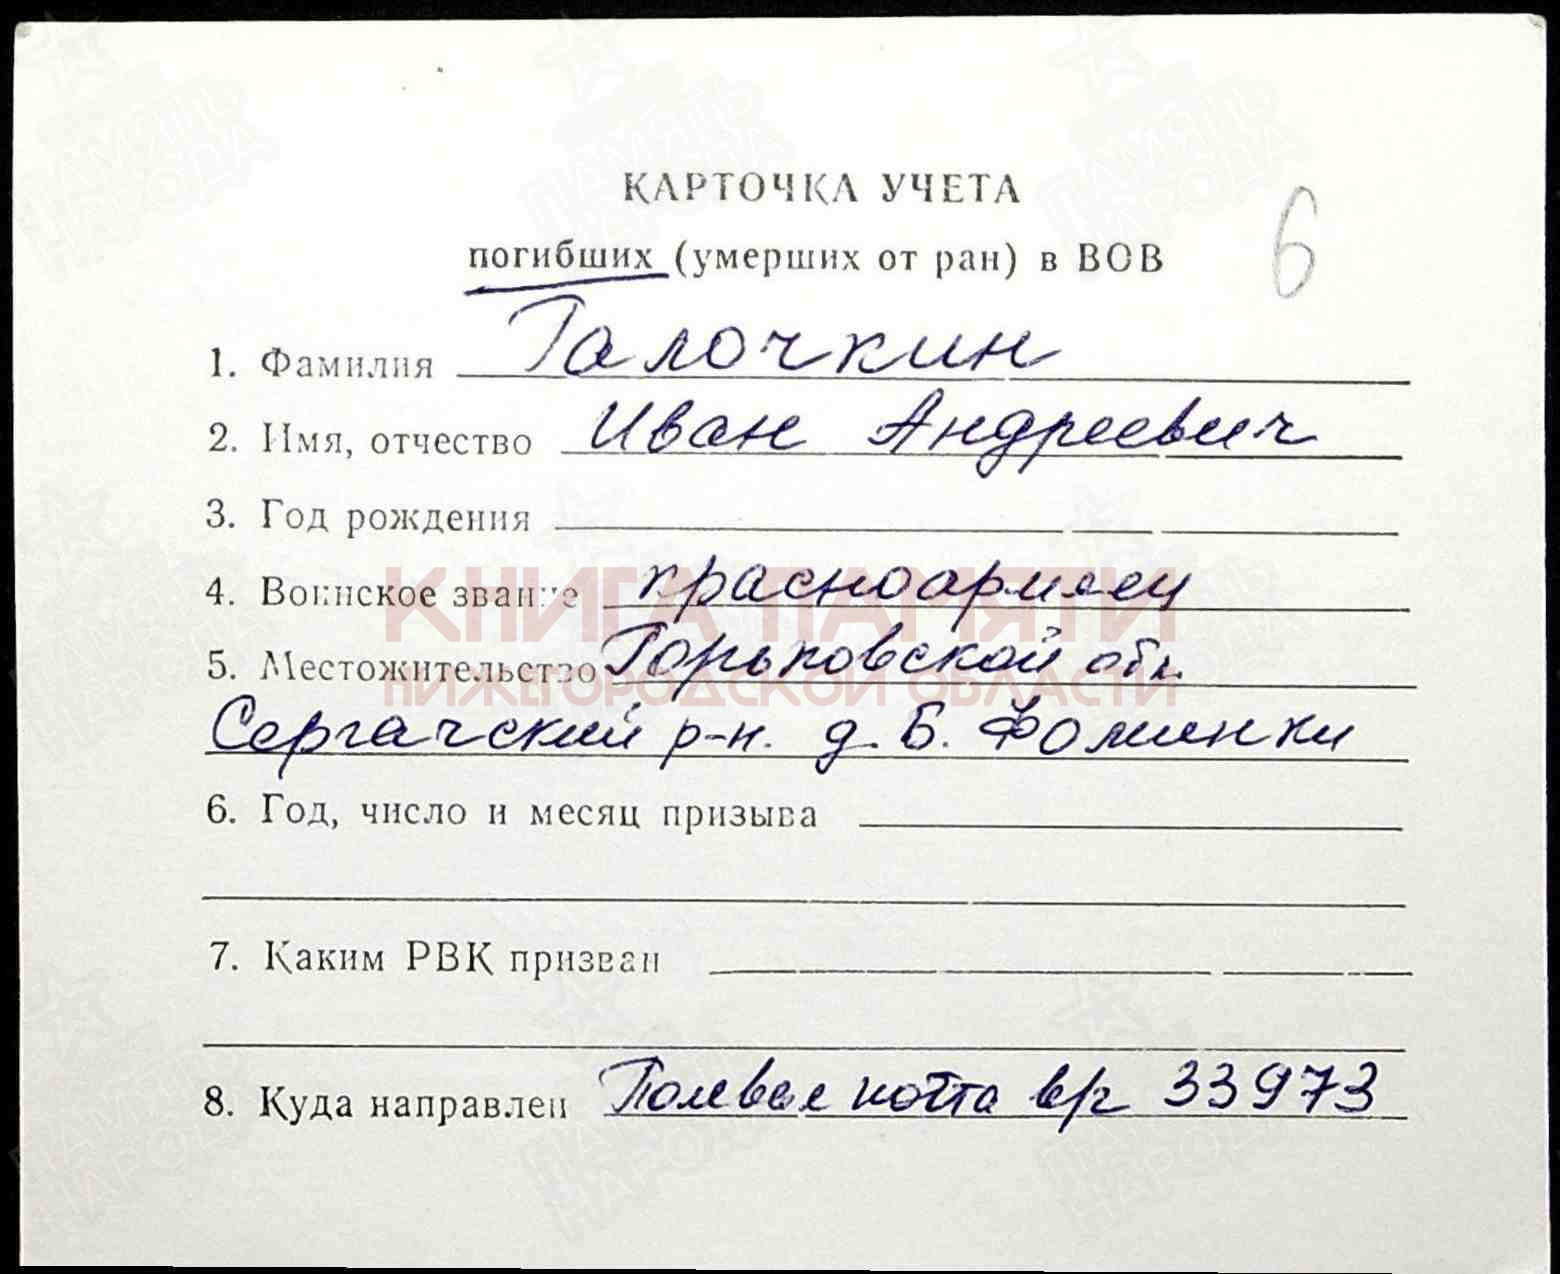 КАРТОЧКА УЧЕТА
погибших (умерших от ран) в ВОВ
6
1. Фамилия Галочкин
2. Имя, отчество Иван Андреевич
3. Год рождения
4. Воинское звание красноармеец
5. Местожительство Горьковской обл.
Сергачский р-н. д. Б. Фоминки
6. Год, число и месяц призыва
7. Каким РВК призван
8. Куда направлен Полевая почта 33973
КНИГА ПАМЯТИ
НИЖЕГОРОДСКОЙ ОБЛАСТИ
ПАМЯТЬ НАРОДА